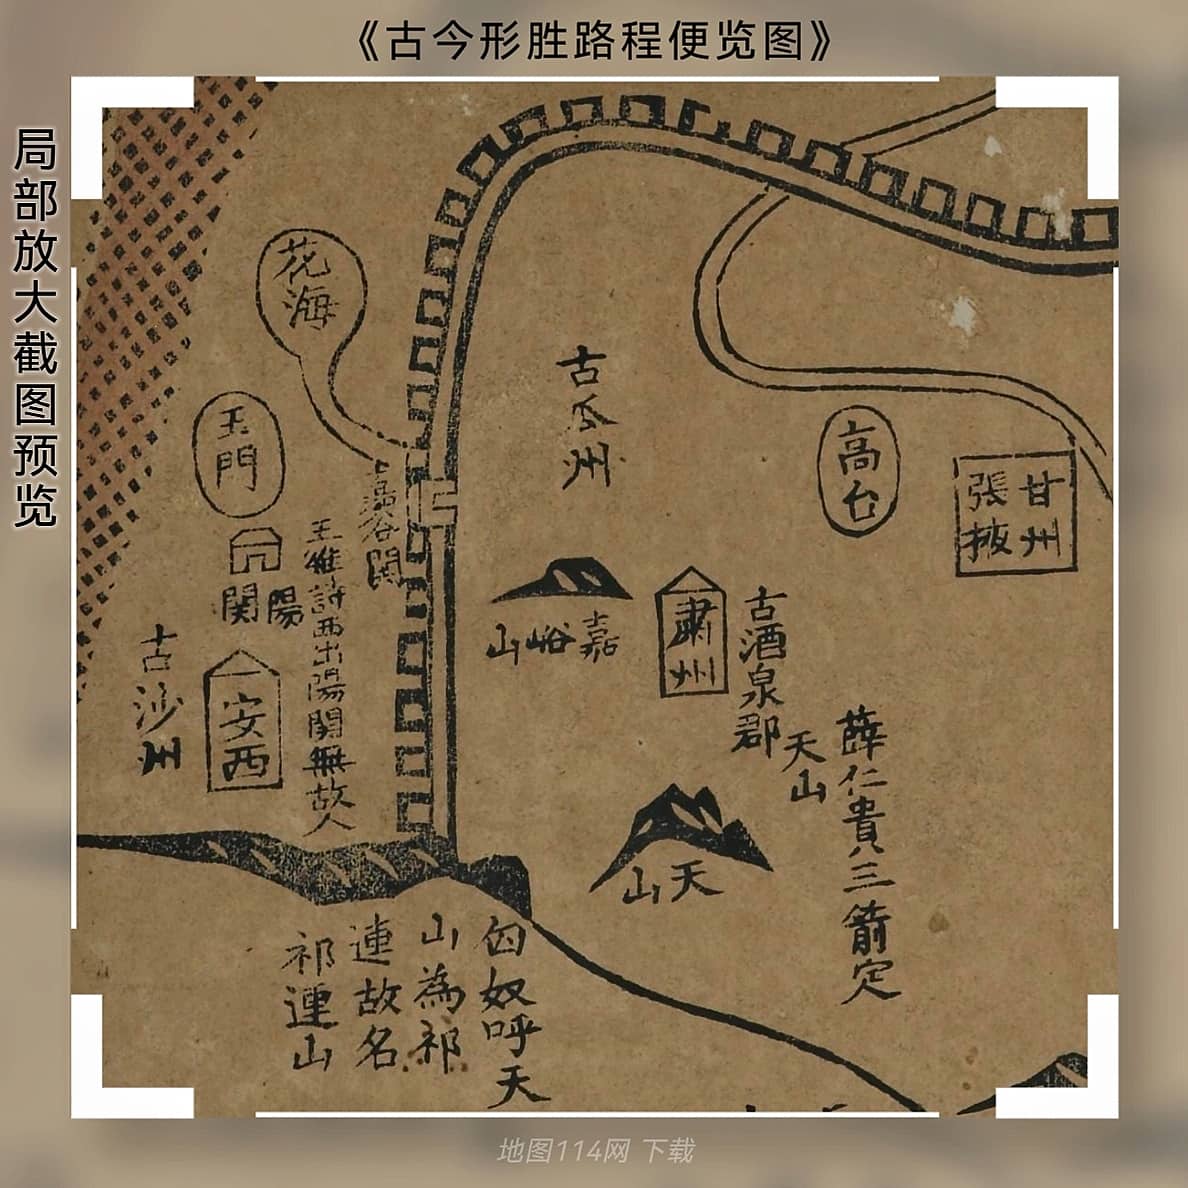 《古今形胜路程便览图》
局部放大截图预览
花海
玉門
嘉谷関
古瓜州
高台
甘州
張掖
陽
関
王維詩西出陽関無故人
嘉峪山
肅州
古酒泉郡
古沙
安西
薛仁貴三箭定
天山
天山
匈奴呼天
山為祁
連故名
祁連山
地图114网 下载